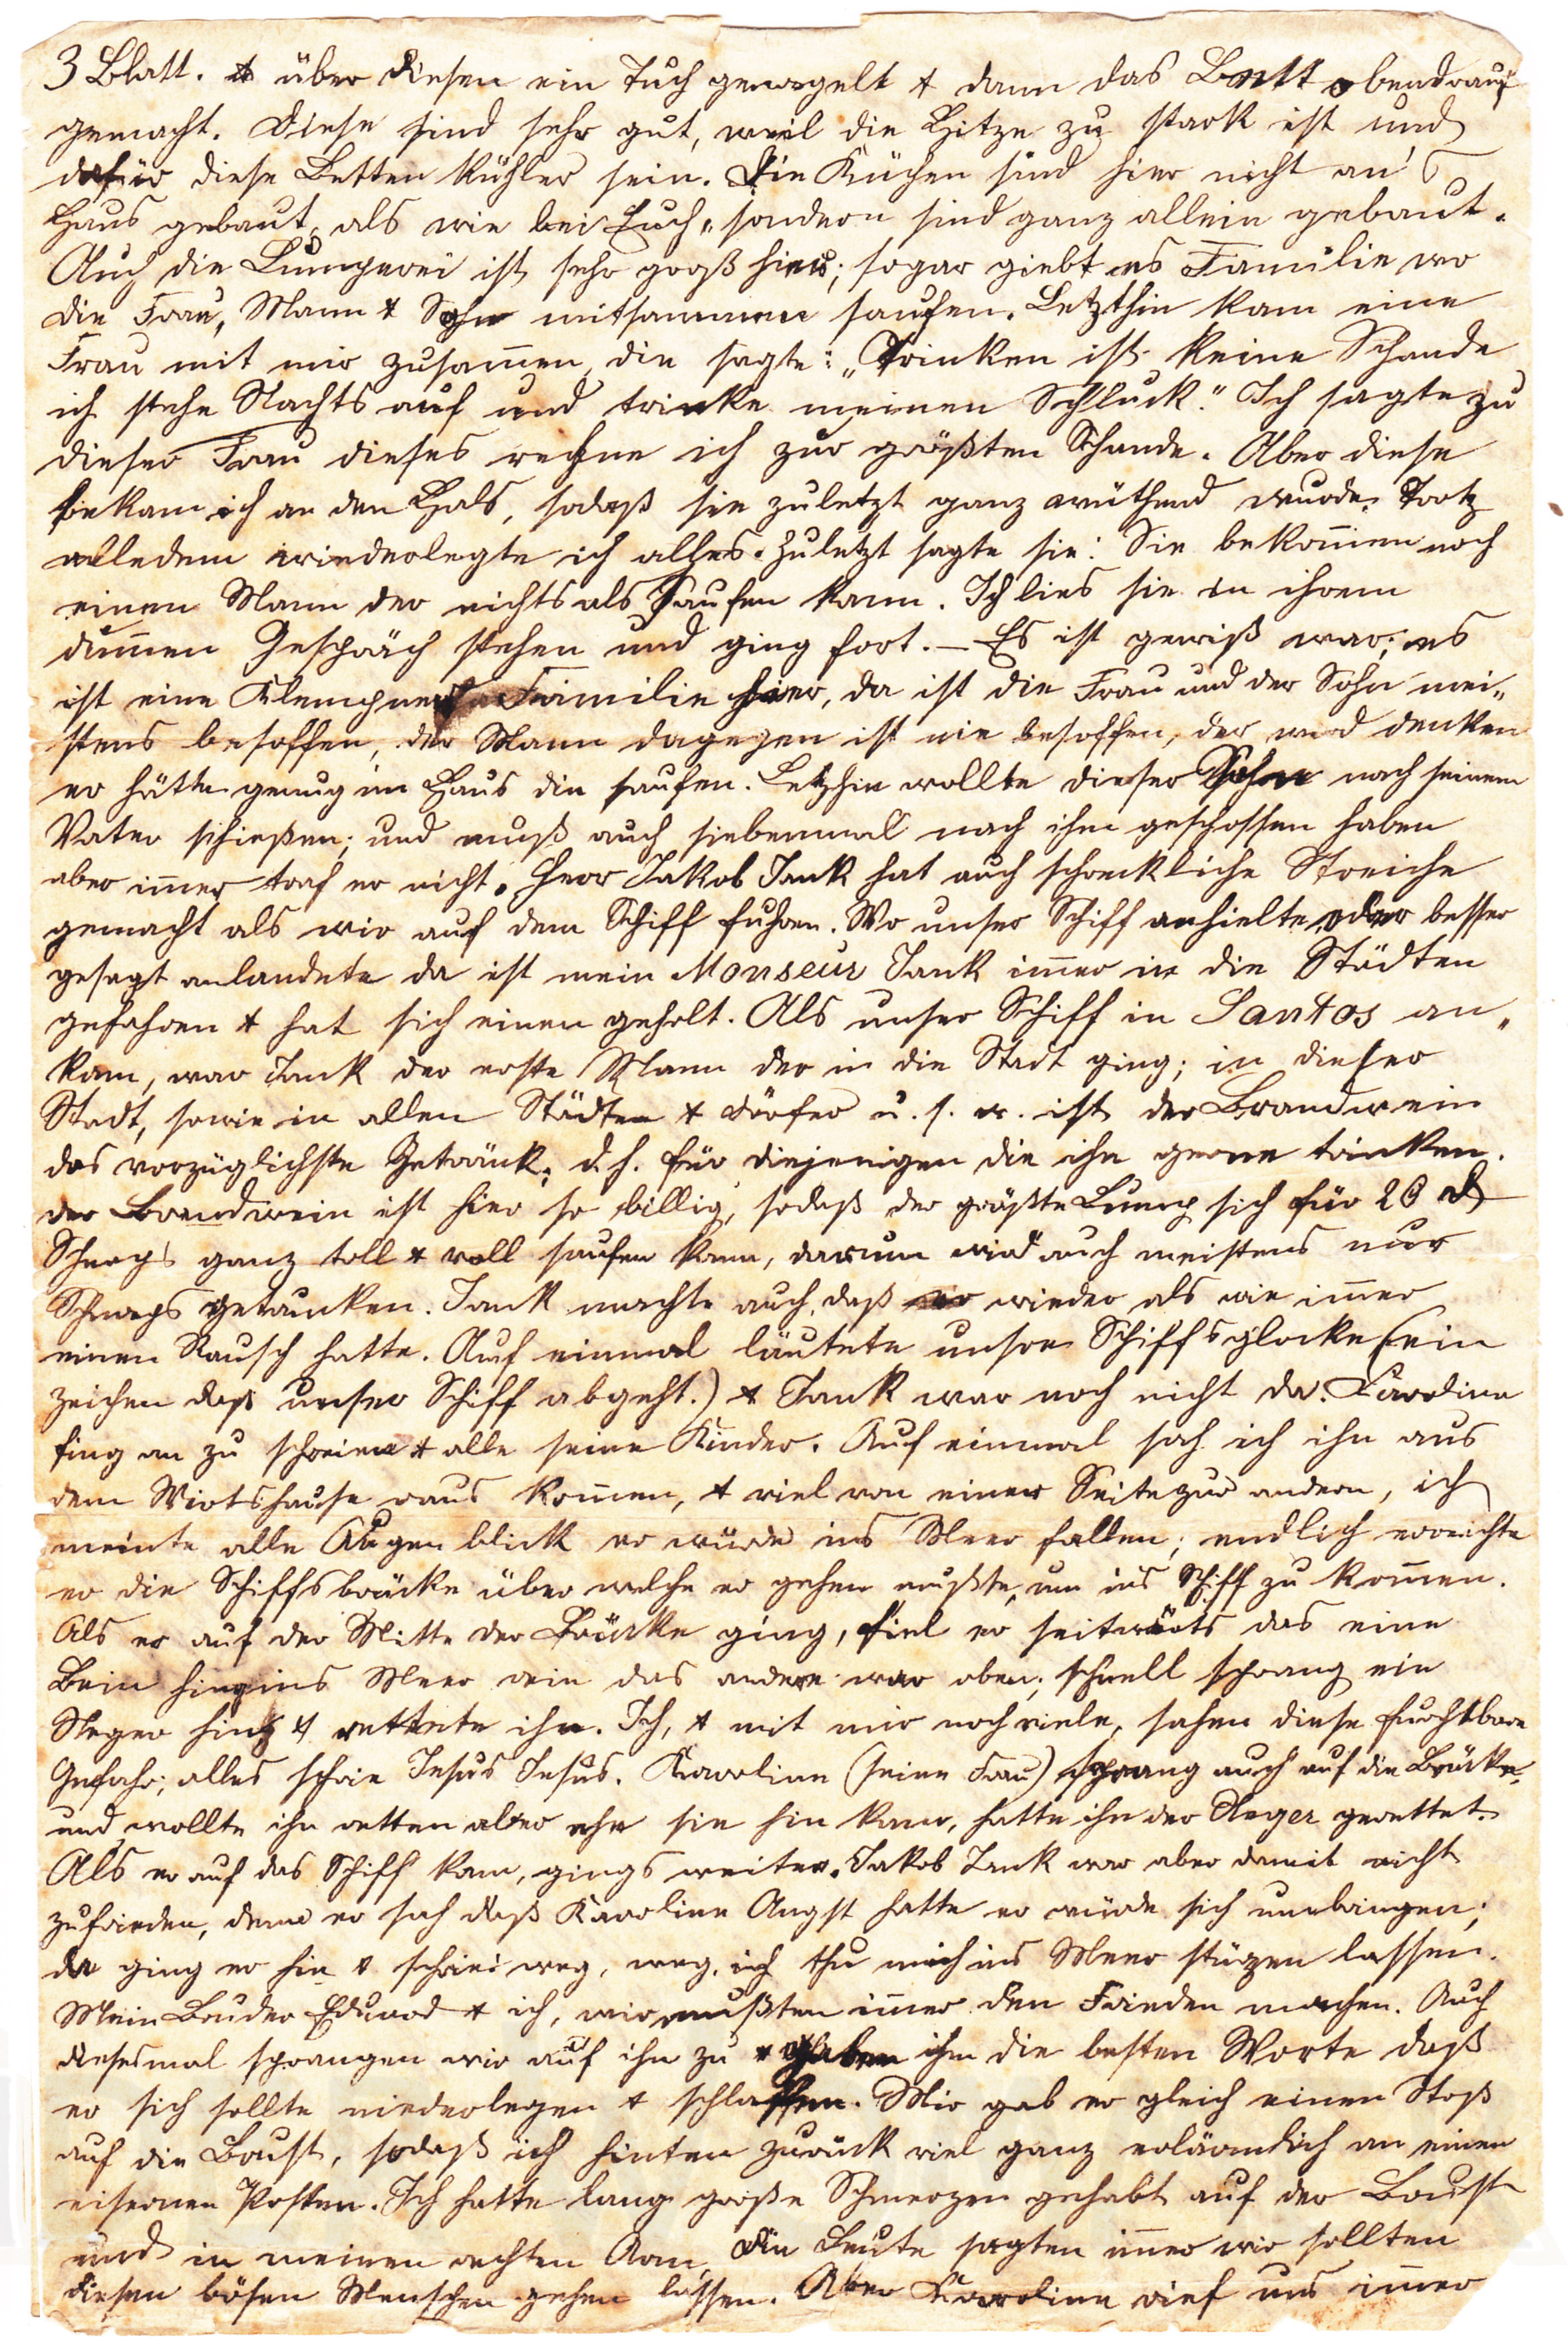 3 Blatt. & über diesen ein Tuch genagelt & dann das Bett obendrauf
gemacht. Diese sind sehr gut, weil die Hitze zu stark ist und
dafür diese Betten kühler sein. Die Küchen sind hier nicht an's
Haus gebaut, als wie bei Euch, sondern sind ganz allein gebaut.
Auch die Lumperei ist sehr groß hier; sogar giebt es Familie wo
die Frau, Mann & Sohn mitsammen saufen. Letzthin kam eine
Frau mit mir zusam̄en die sagte: „Trinken ist keine Schande
ich stehe Nachts auf und trinke meinen Schluck." Ich sagte zu
dieser Frau dieses rechne ich zur größten Schande. Aber diese
bekam ich an den Hals, sodaß sie zuletzt ganz wüthend wurde. Trotz
alledem wiederlegte ich alles. Zuletzt sagte sie: Sie bekom̄en noch
einen Mann der nichts als Saufen kann. Ich lies sie in ihrem
dum̄en Gespräch stehen und ging fort. – Es ist gewiß war; es
ist eine Klempner Familie hier, da ist die Frau und der Sohn mei„
stens besoffen, der Mann dagegen ist nie besoffen, der wird denken
er hätte genug im Haus die saufen. Letzhin wollte dieser Sohn nach seinem
Vater schießen; und muß auch siebenmal nach ihm geschossen haben
aber im̄er traf er nicht. Herr Jakob Tank hat auch schreckliche Streiche
gemacht als wir auf dem Schiff fuhren. Wo unser Schiff anhielte oder besser
gesagt anlandete da ist mein Monseur Tank im̄er in die Städten
gefahren & hat sich einen geholt. Als unser Schiff in Santos an„
kam, war Tank der erste Mann der in die Stadt ging; in dieser
Stadt, sowie in allen Städten & Dörfer u. s. w. ist der Brandwein
das vorzüglichste Getränk, d. h. für diejenigen die ihn gerne trinken.
der Brandwein ist hier so billig, sodaß der größte Lump sich für 20 ₰
Schnaps ganz toll & voll saufen kann, darum wird auch meistens nur
Schnaps getrunken. Tank machte auch, daß er wieder als wie im̄er
einen Rausch hatte. Auf einmal läutete unsre Schiffsglocke (ein
zeichen daß unser Schiff abgeht.) & Tank war noch nicht da. Karoline
fing an zu schreien & alle seine Kinder. Auf einmal sah ich ihn aus
dem Wirtshause raus kom̄en, & viel von einer Seite zur andern, ich
meinte alle Augenblick er würde ins Meer fallen; endlich erreichte
er die Schiffsbrücke über welche er gehen mußte, um ins Schiff zu kom̄en.
Als er auf der Mitte der Brücke ging, fiel er seitwärts das eine
Bein hing ins Meer rein das andere war oben; schnell sprang ein
Neger hinzu & rettete ihn. Ich, & mit mir noch viele, sahen diese furchtbare
Gefahr; alles schrie Jesus Jesus. Karoline (seine Frau) sprang auch auf die Brücke,
und wollte ihn retten aber ehe sie hin kam, hatte ihn der Neger gerettet.
Als er auf das Schiff kam, gings weiter. Jakob Tank war aber damit nicht
zufrieden, denn er sah daß Karoline Angst hatte er würde sich umbringen;
da ging er hin & schrie: weg, weg, ich thu mich ins Meer stürzen lassen.
Mein Bruder Eduard & ich, wir mußten im̄er den Frieden machen. Auch
diesesmal sprangen wir auf ihn zu & gaben ihm die besten Worte daß
er sich sollte niederlegen & schlaffen. Mir gab er gleich einen Stoß
auf die Brust, sodaß ich hinten zurück viel ganz erbärmlich an einen
eisernen Posten. Ich hatte lang große Schmerzen gehabt auf der Brust
und in meinen rechten Arm, die Leute sagten im̄er wir sollten
diesen bösen Menschen gehen lassen. Aber Karoline rief uns im̄er